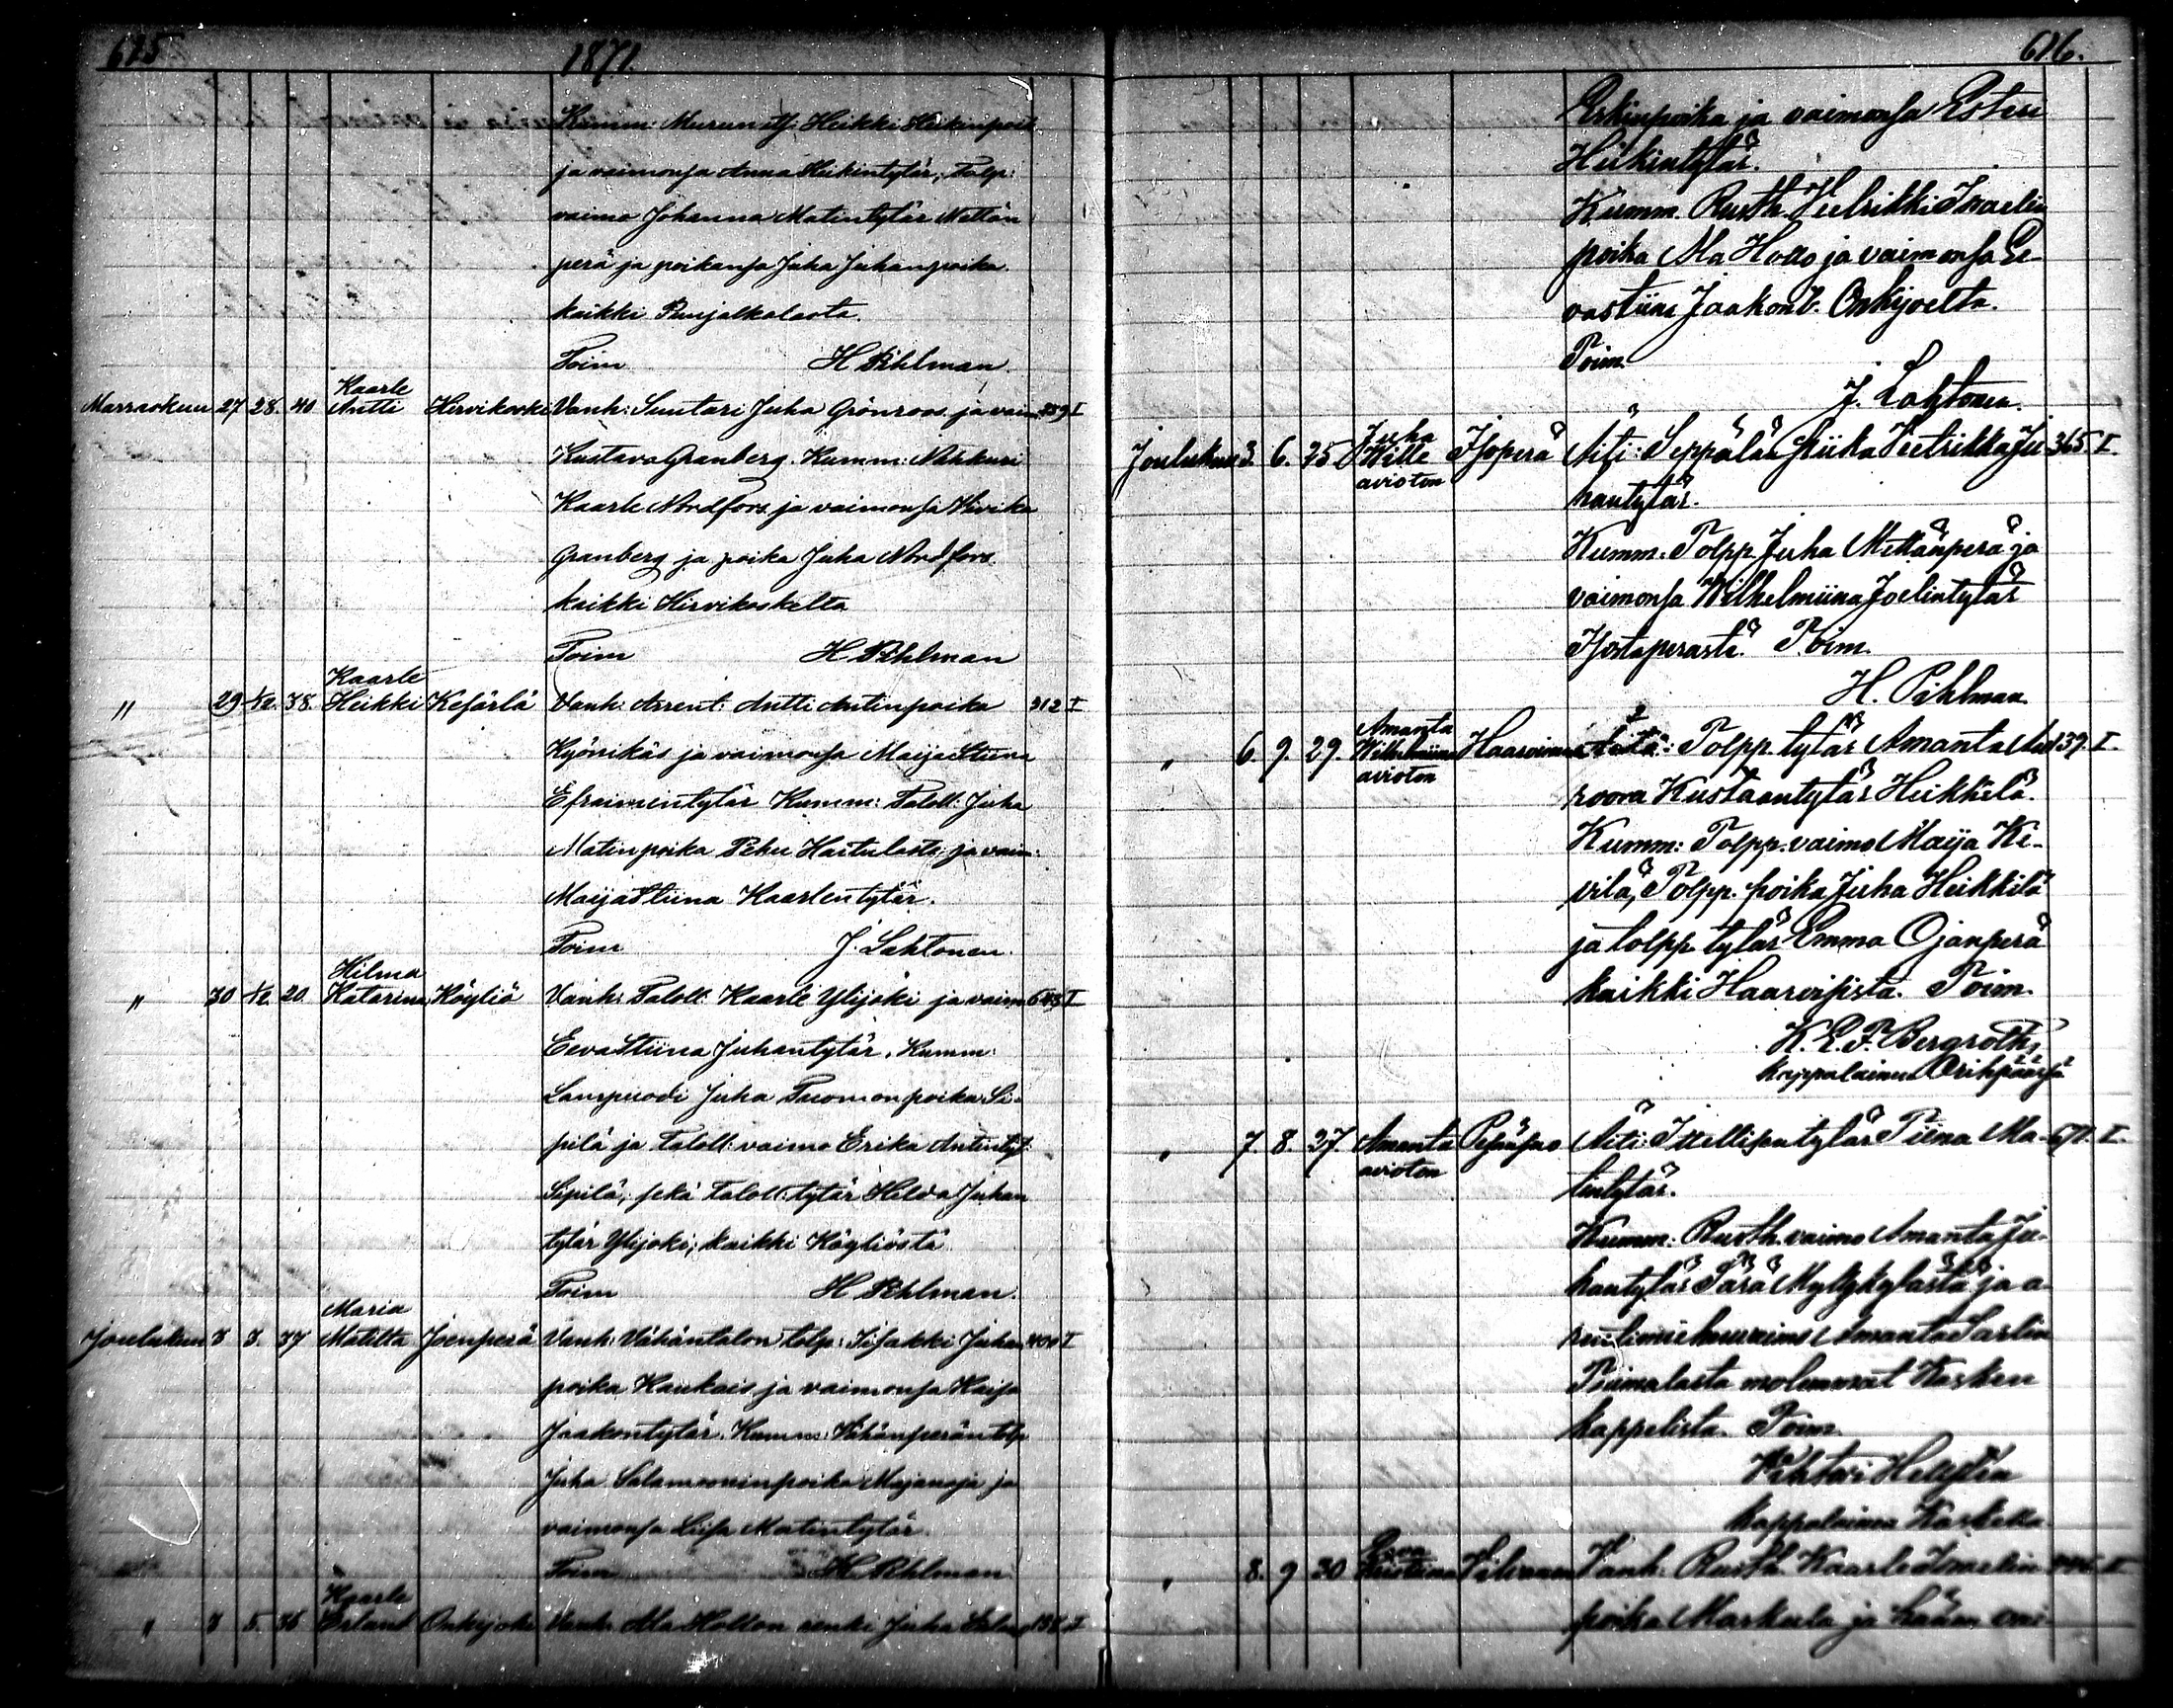 615
1871.
Kumm: Heikki Heikinpoik
ja vaimonsa Anna Heikintytär, Tolp:
vaimo Johanna Matintytär Mettän
perä ja poikansa Juha Juhanpoika
kaikki Purjalkalasta.
Toim H Pihlman
Marraskuu 27 28. 40 Kaarle Antti Hirvikoski Vanh: Suutari Juha Grönroos ja vaim 259 I
Kustava Granberg. Kumm: Nahkuri
Kaarle Nordfors ja vaimonsa
Granberg ja poika Juha Nordfors
kaikki Hirvikoskelta
Toim H Pihlman
" 29 1/12. 38. Kaarle Heikki Kesärlä Vanh: Arrent: Antti Antinpoika 312 I
Kyönikäs ja vaimonsa Maija Stiina
Efraimintytär Kumm: Taloll: Juha
Matinpoika Haitulasta ja vaim:
Maija Stiina Kaarlentytär.
Toim J. Lahtonen.
" 30 1/12. 20. Hilma Katarina Köyliö Vanh: Taloll: Kaarle Ylijoki ja vaim 643 I
Eeva Stiina Juhantytär. Kumm:
Lampuodi Juha Tuomonpoika Si-
pilä ja Taloll: vaimo Erika Antintyt:
Sipilä, sekä Taloll: tytär Hilda Juhan
tytär Ylijoki, kaikki Köyliöstä
Toim H Pihlman.
Joulukuu 3 3. 37 Maria Matilta Joenperä Vanh: Vähäntalon tolp: Iisakki Juhan 400 I
poika Kaukais ja vaimonsa Kaisa
Jaakontytär. Kumm: Vähänperän tolp
Juha Salamooninpoika Majanoja ja
vaimonsa Liisa Matintytär
Toim H Pihlman
" 3 5. 36 Kaarle Erland Onkijoki Vanh: Ala Hollon renki Juha I
616.
Erkinpoika ja vaimonsa Esteri
Heikintytär.
Kumm. Rusth. Heelrikki Israelin
poika Ala Hollo ja vaimonsa Se-
vastiina Jaakont. Onkijoelta.
Toim
J. Lahtonen.
Joulukuu 3. 6. 25 Juha Wille avioton Isoperä Äiti: Seppälän piika Veetriikka Ju- 365. I.
hantytär.
Kumm: Tolpp. Juha Mettänperä ja
vaimonsa Wilhelmiina Joelintytär
Isostaperästä. Toim.
H. Pihlman.
" 6. 9. 29. Amanta Wilhelmiina avioton Äiti: Tolpp. tytär Amanta Au- 139. I.
roora Kustaantytär Heikkilä.
Kumm: Tolpp. vaimo Maija Ki-
vilä, Tolpp. poika Juha Heikkilä
ja tolpp. tytär Emma Ojanperä
kaikki Haarvisista. Toim.
K. E. F. Bergroth,
kappalainen Oripäässä
" 7. 8. 37. Amanta avioton Äiti: Itsellisen tytär Tiina Ma- 671. I.
tintytär.
Kumm: Rusth. vaimo Amanta Ju-
hantytär Pärä Myllykylästä ja
Amanta Sarlin
molemmat Kosken
kappelista. Toim.
Wihtori
kappalainen Koskella
" 8. 9 30 Eeva Kristiina Vanh: Rusth. Kaarle Israelin I
poika Markula ja hänen